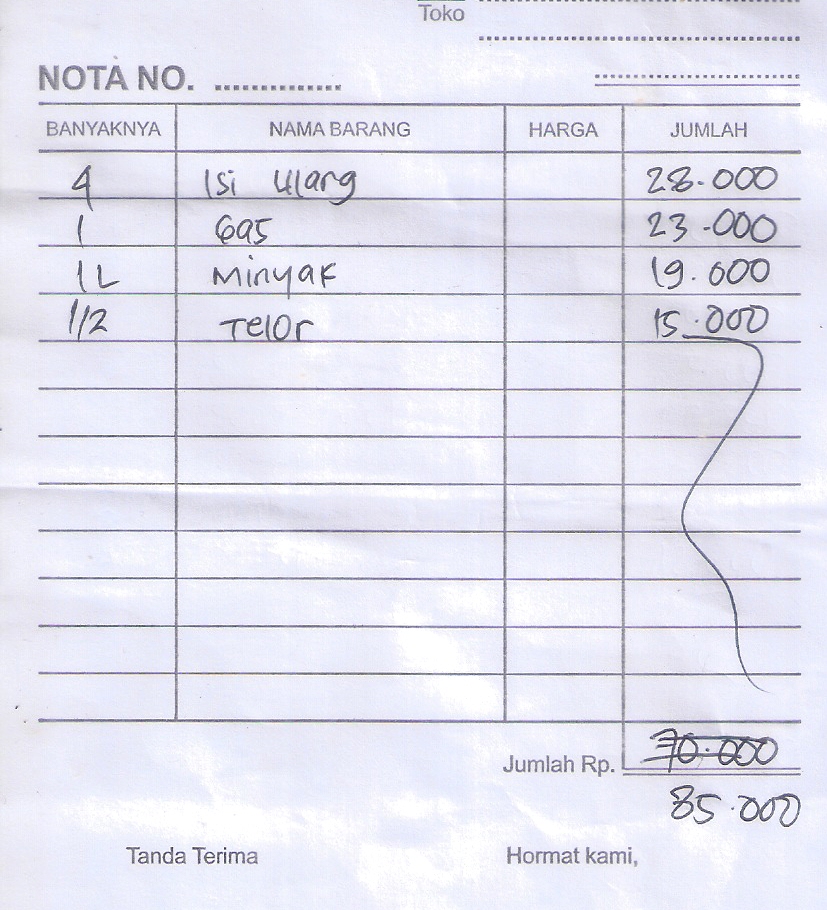 Toko
NOTA NO. ..............
BANYAKNYA NAMA BARANG HARGA JUMLAH
4 Isi Ulang 28.000
1 Gas 23.000
1 L Minyak 19.000
1/2 Telor 15.000
Jumlah Rp. 70.000
85.000
Tanda Terima Hormat kami,